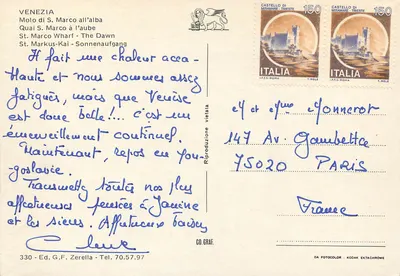 VENEZIA
Moto di S. Marco all'alba
Quai S. Marco à l'aube
St. Marco Wharf - The Dawn
St. Markus-Kai - Sonnenaufgang
Il fait une chaleur acca-
blante et nous sommes assez
fatigués, mais que Venise
est donc belle!... c'est un
émerveillement continuel.
Maintenant, repos en You-
goslavie.
Transmettez toutes nos plus
affectueuses pensées à Janine
et les siens. Affectueux baisers
330 - Ed. G.F. Zerella - Tel. 70.57.97
CO. GRAF.
Riproduzione vietata
CASTELLO DI MIRAMARE TRIESTE 150
ITALIA
CASTELLO DI MIRAMARE TRIESTE 150
ITALIA
M et Mme Monnerot
147 Av. Gambetta
75020 PARIS
France
DA FOTOCOLOR KODAK EKTACHROME